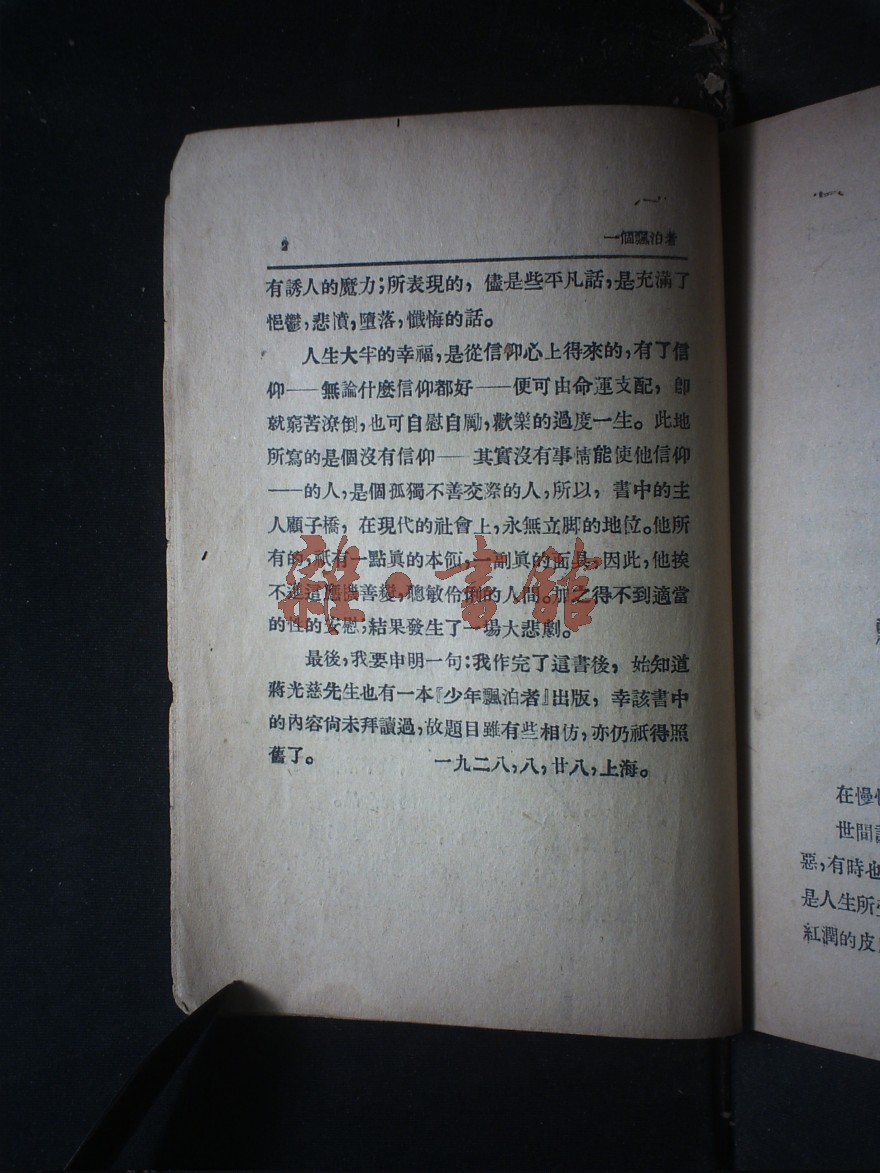 2
一個飄泊者
有誘人的魔力；所表現的，儘是些平凡話，是充滿了
悒鬱，悲憤，墮落，懺悔的話。
人生大半的幸福，是從信仰心上得來的，有了信
仰——無論什麼信仰都好——便可由命運支配，卽
就窮苦潦倒，也可自慰自勵，歡樂的過度一生。此地
所寫的是個沒有信仰——其實沒有事情能使他信仰
——的人，是個孤獨不善交際的人，所以，書中的主
人顧子橋，在現代的社會上，永無立脚的地位。他所
有的，祇有一點眞的本領，一副眞的面具，因此，他挨
不進這應機善變，聰敏伶俐的人間。加之得不到適當
的性的安慰，結果發生了一場大悲劇。
最後，我要申明一句：我作完了這書後，始知道
蔣光慈先生也有一本『少年飄泊者』出版，幸該書中
的內容尙未拜讀過，故題目雖有些相仿，亦仍祇得照
舊了。
一九二八，八，廿八，上海。
雜·書館
世間
惡，有時也
是人生所
紅潤的皮